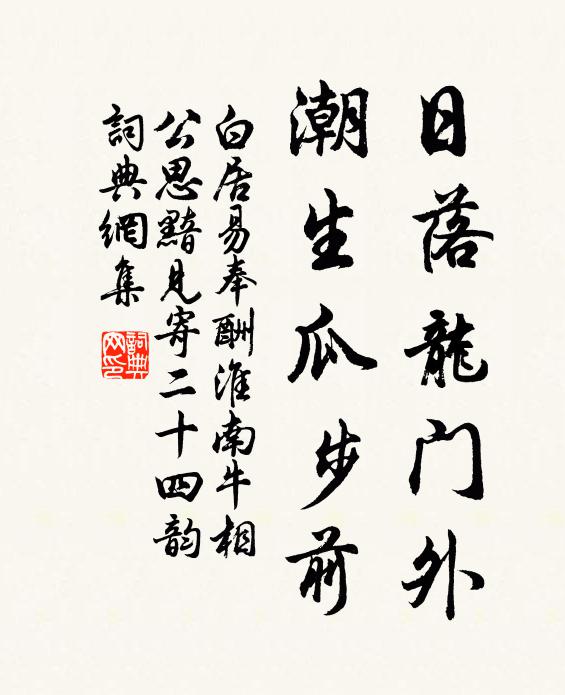 日落龍门外
潮生瓜步前
白居易奉酬淮南牛相
公思黯見寄二十四韵
詞典網集
詞典网印